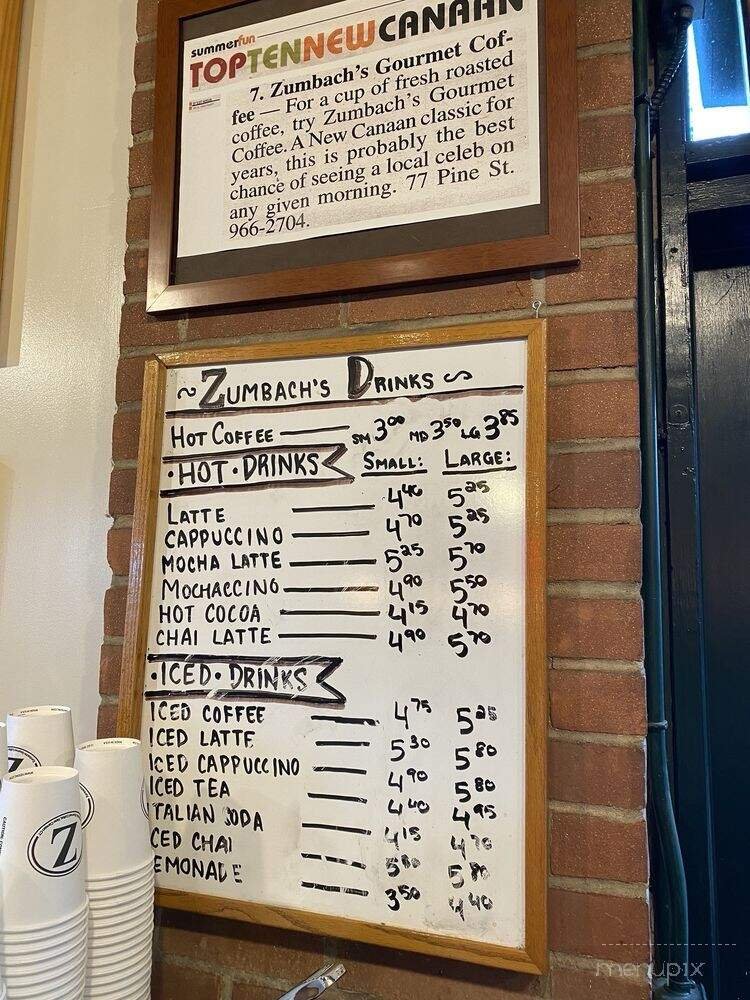 summerfun
TOPTENNEWCANAAN
7. Zumbach's Gourmet Cof-
fee — For a cup of fresh roasted
coffee, try Zumbach's Gourmet
Coffee. A New Canaan classic for
years, this is probably the best
chance of seeing a local celeb on
any given morning. 77 Pine St.
966-2704.
~ZUMBACH'S DRINKS~
HOT COFFEE — SM 3.00 MD 3.50 LG 3.85
·HOT·DRINKS SMALL: LARGE:
LATTE — 4.40 5.25
CAPPUCCINO — 4.70 5.25
MOCHA LATTE — 5.25 5.70
MOCHACCINO — 4.90 5.50
HOT COCOA — 4.15 4.70
CHAI LATTE — 4.90 5.70
·ICED·DRINKS
ICED COFFEE — 4.75 5.25
ICED LATTE — 5.30 5.80
ICED CAPPUCCINO — 4.90 5.80
ICED TEA — 4.40 4.95
TALIAN SODA — 4.15 4.70
CED CHAI — 5.80
EMONADE — 3.50 4.40
Z
menupix